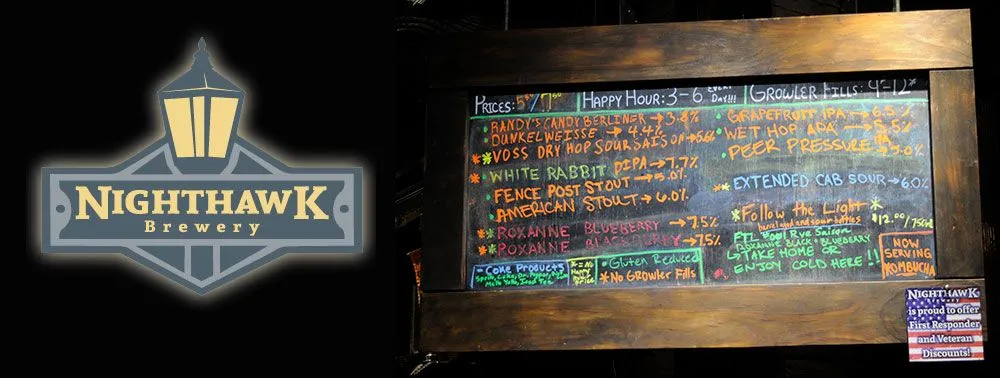 NIGHTHAWK
Brewery
PRICES: 5
HAPPY HOUR: 3-6 EVERY DAY!!!
GROWLER FILLS: 4-12*
RANDY'S CANDY BERLINER → 3.8%
DUNKELWEISSE → 4.4%
VOSS DRY HOP SOUR SAISON → 5.6%
WHITE RABBIT DIPA → 7.7%
FENCE POST STOUT → 5.0%
AMERICAN STOUT → 6.0%
ROXANNE BLUEBERRY → 7.5%
ROXANNE BLACKBERRY → 7.5%
GRAPEFRUIT IPA → 6.5%
WET HOP APA → 5.5%
PEER PRESSURE 5.0%
EXTENDED CAB SOUR → 6.0%
*Follow the Light*
barrel aged and sour bottles
$12.00/750ml
FT. Rye Saison
ROXANNE BLACK + BLUEBERRY
TAKE HOME OR
ENJOY COLD HERE!!
NOW
SERVING
KOMBUCHA
- Coke Products
Sprite, Coke, Dr. Pepper,
Mello Yello, Iced Tea
* = No
Happy
Hour
Price
- Gluten Reduced
*No Growler Fills
NIGHTHAWK
Brewery
is proud to offer
First Responder
and Veteran
Discounts!